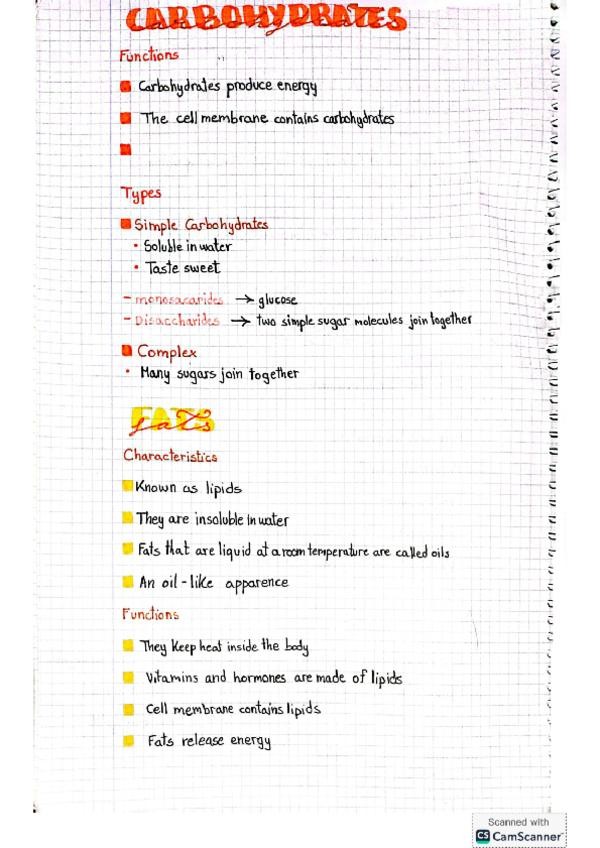 CARBOHYDRATES
Functions
Carbohydrates produce energy
The cell membrane contains carbohydrates
Types
Simple Carbohydrates
• Soluble in water
• Taste sweet
- monosacarides → glucose
- Disaccharides → two simple sugar molecules join together
Complex
• Many sugars join together
FATS
fats
Characteristics
Known as lipids
They are insoluble in water
Fats that are liquid at a room temperature are called oils
An oil-like apparence
Functions
They keep heat inside the body
Vitamins and hormones are made of lipids
Cell membrane contains lipids
Fats release energy
Scanned with
CS CamScanner